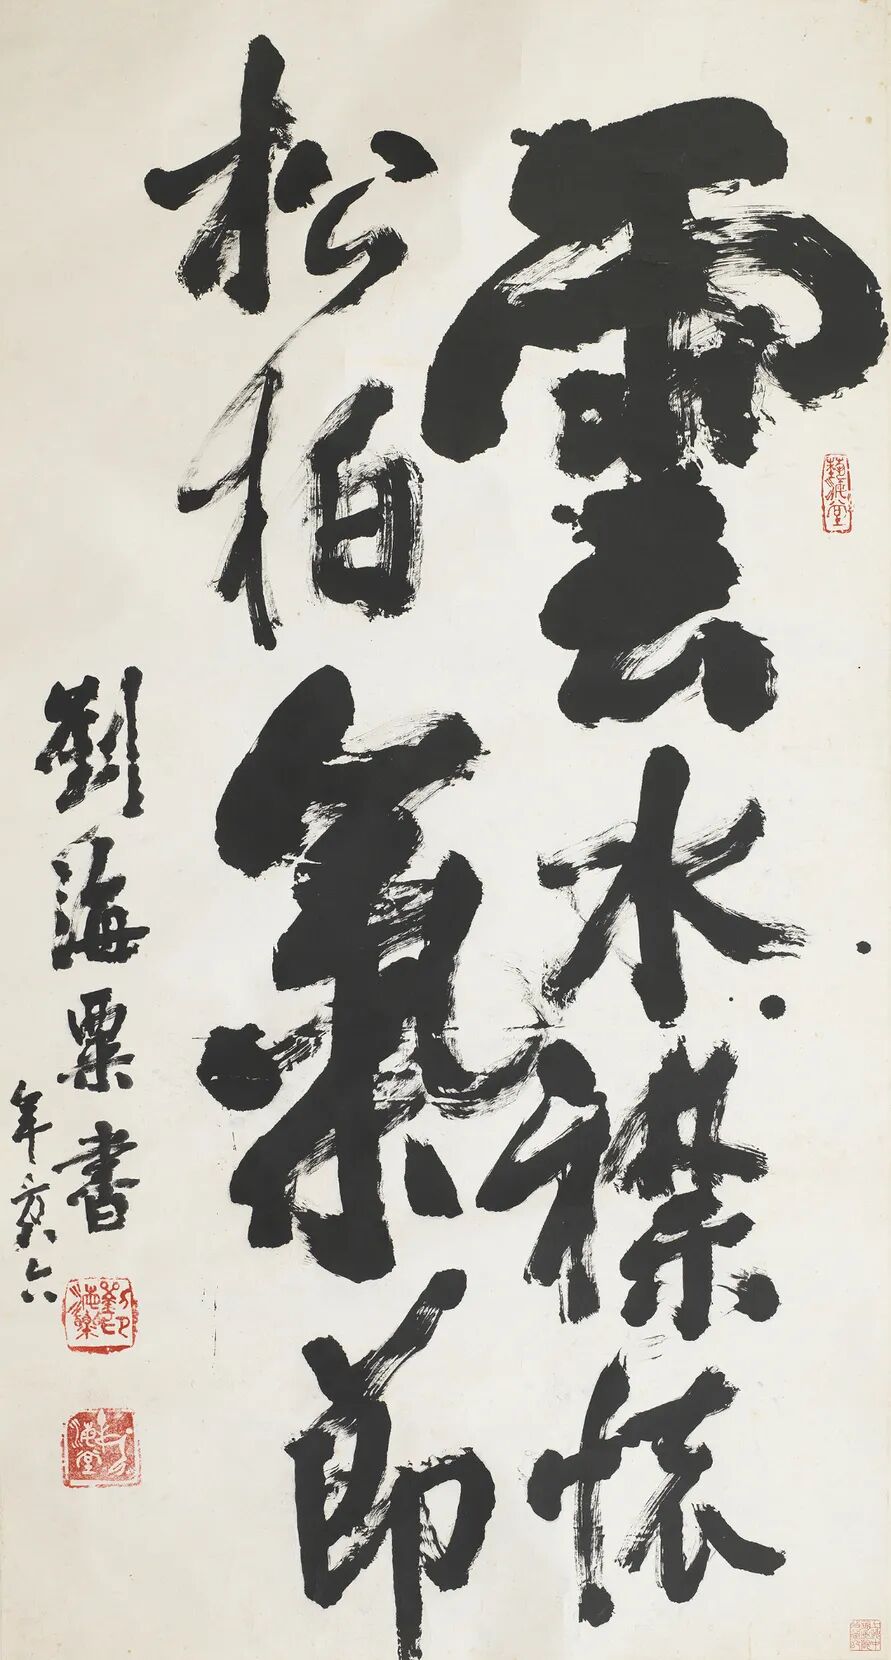 雲水襟懷
松柏氣節
劉海粟書
年方八六
劉海粟印